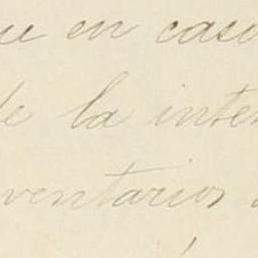 ue en caso
de la inte
ventarios